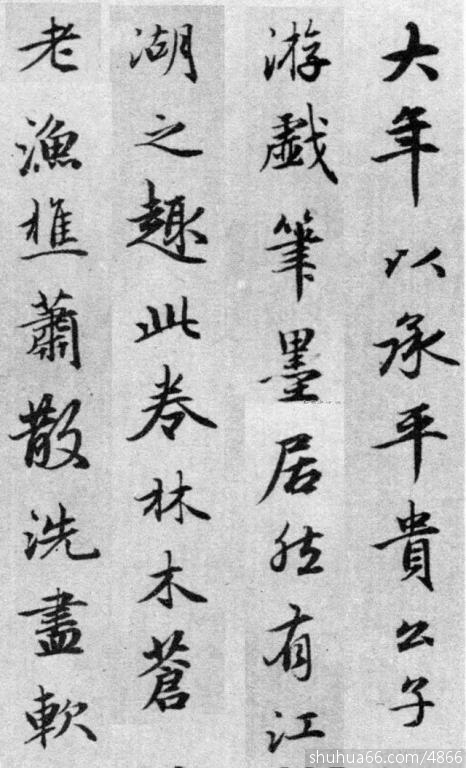 大年以承平貴公子
游戲筆墨居然有江
湖之趣此卷林木蒼
老漁樵蕭散洗盡軟
shuhua66.com/4866